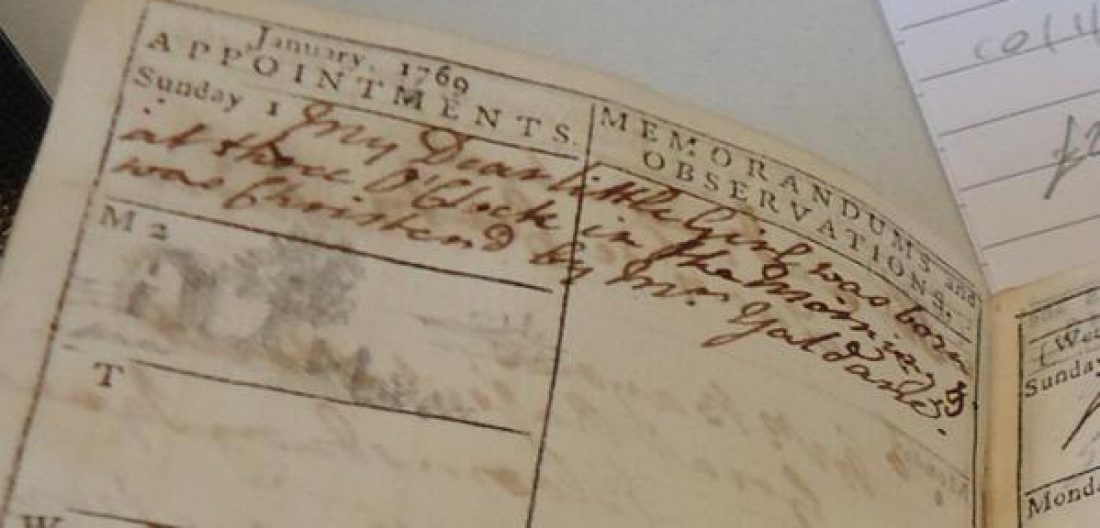 January, 1769
APPOINTMENTS.
MEMORANDUMS and
OBSERVATIONS.
Sunday 1 My Dear little Girl was born
at three O'Clock in the Morning &
was Christend by Mr.
M 2
T
W
Sunday
Monda